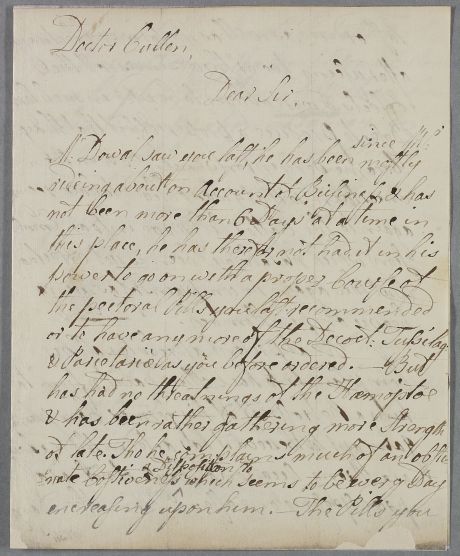 Doctor Cullen,
Dear Sir
since Mr
McDowal saw you last, he has been mostly
rideing about on account of Bussiness & has
not been more than 6 Days at a time in
this place, he has therefor not had it in his
power to go on with a proper Course of
the pectoral Pills you last recommended
or to have any more of the Decoct: Tusilag
& Parietariae as you before ordered. — But
has had no threatnings of the Haemoptoe
& has been rather gathering more strength
of late. Tho he complains much of an obsti-
nate Costiveness & disposition to which seems to be every Day
encreasing upon him. — The Pills you